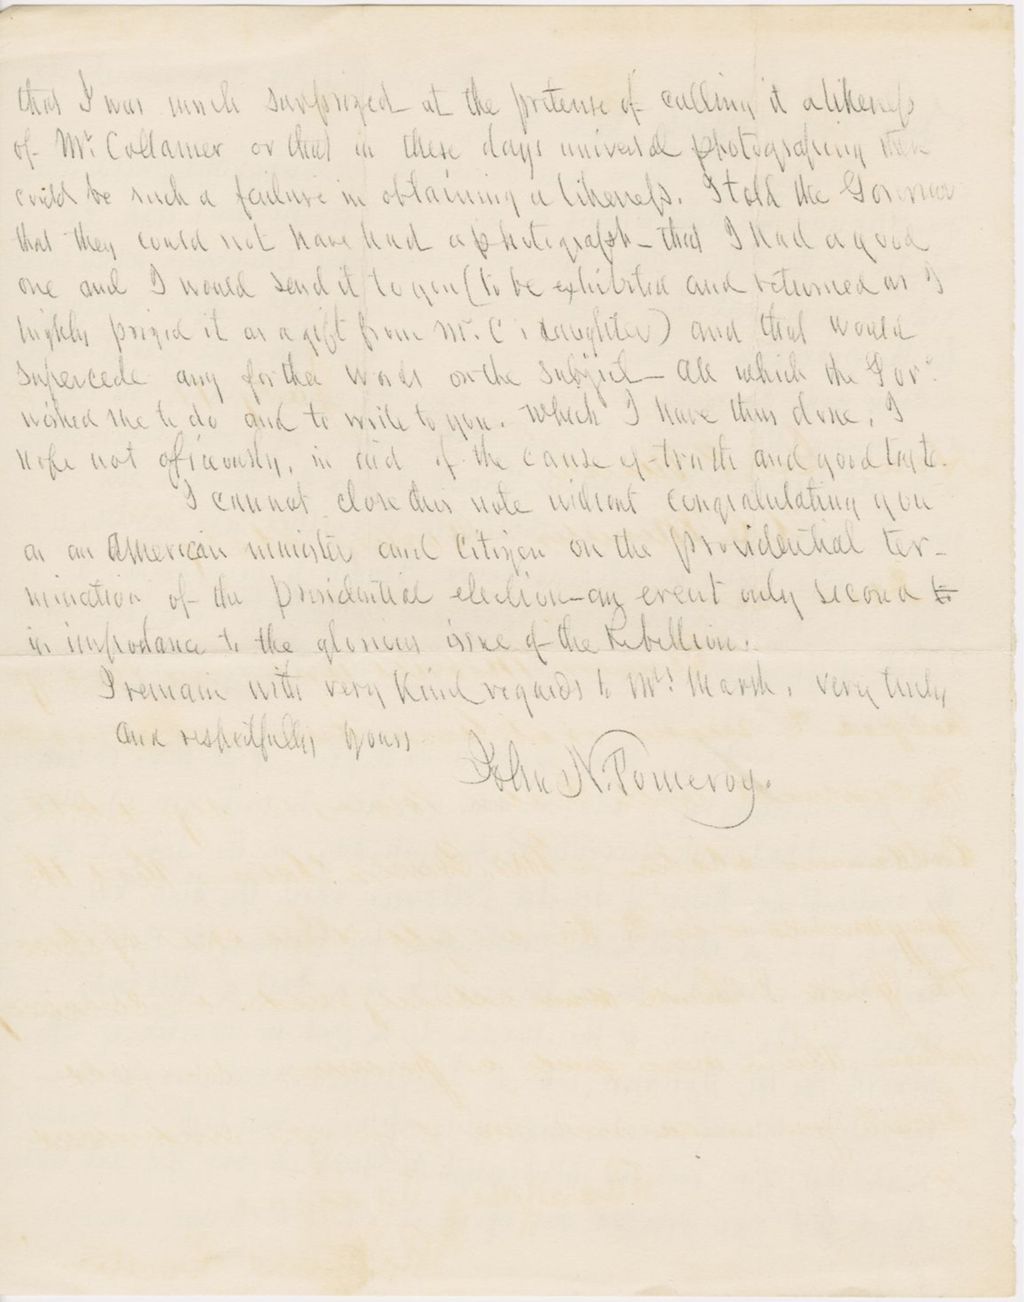 that I was much surprized at the pretense of calling it a likeness
of Mr. Collamer or that in these days universal photographing there
could be such a failure in obtaining a likeness. I told the Governor
that they could not have had a photograph – that I had a good
one and I would send it to you (to be exhibited and returned as I
highly prized it as a gift from Mr. C's daughter) and that would
supercede any further words on the subject – all which the Gov.
wished me to do and to write to you. Which I have thus done, I
hope not oficiously, in aid of the cause of truth and good taste.
I cannot close this note without congratulating you
as an American minister and citizen on the providential ter-
mination of the presidential election – an event only second to
in importance to the glorious issue of the Rebellion.
I remain with very kind regards to Mrs. Marsh, very truly
and respectfully yours
John N. Pomeroy.